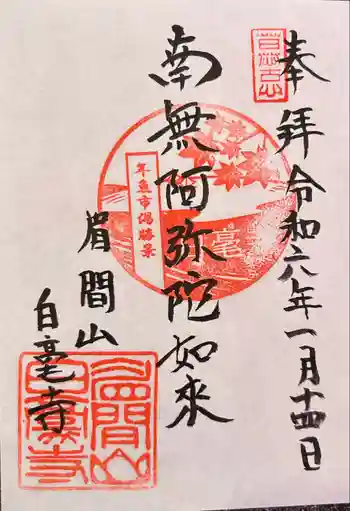 奉拝 令和六年一月十四日
南無阿弥陀如来
眉間山
白毫寺
年魚市潟勝景
毫
眉間山
白毫寺